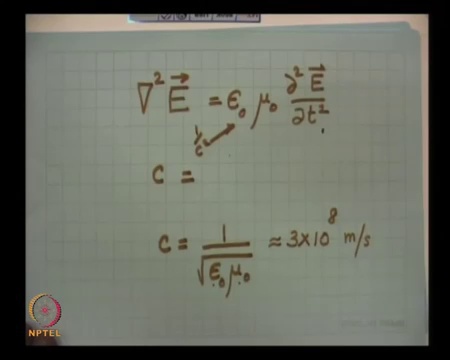 ∇² E⃗ = ϵ₀ μ₀ ∂² E⃗ / ∂t²
1/c
C =
C = 1 / √ϵ₀ μ₀ ≈ 3×10⁸ m/s
NPTEL